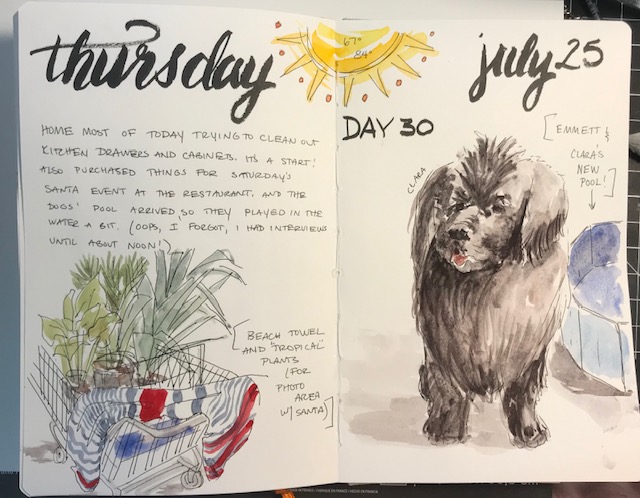 thursday
67°
84°
july 25
DAY 30
HOME MOST OF TODAY TRYING TO CLEAN OUT
KITCHEN DRAWERS AND CABINETS. IT'S A START!
ALSO PURCHASED THINGS FOR SATURDAY'S
SANTA EVENT AT THE RESTAURANT, AND THE
DOGS' POOL ARRIVED, SO THEY PLAYED IN THE
WATER A BIT. (OOPS, I FORGOT, I HAD INTERVIEWS
UNTIL ABOUT NOON!)
BEACH TOWEL
AND "TROPICAL"
PLANTS
(FOR
PHOTO
AREA
W/ SANTA)]
CLARA
[EMMETT &
CLARA'S
NEW
POOL!]